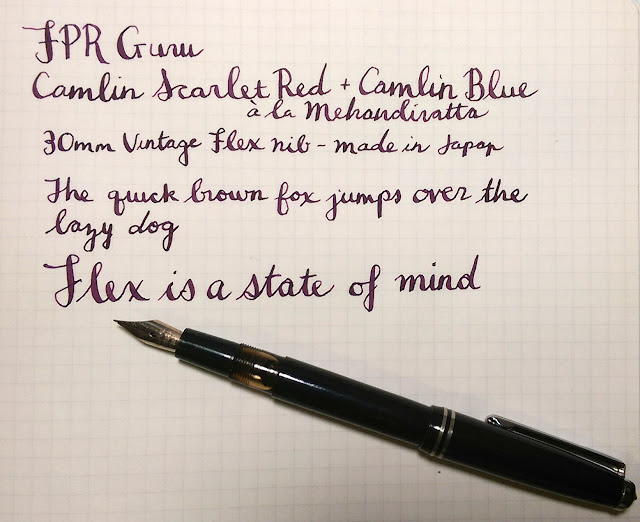 FPR Guru
Camlin Scarlet Red + Camlin Blue
à la Mehandiratta
30mm Vintage Flex nib - made in Japan
The quick brown fox jumps over the
lazy dog
Flex is a state of mind